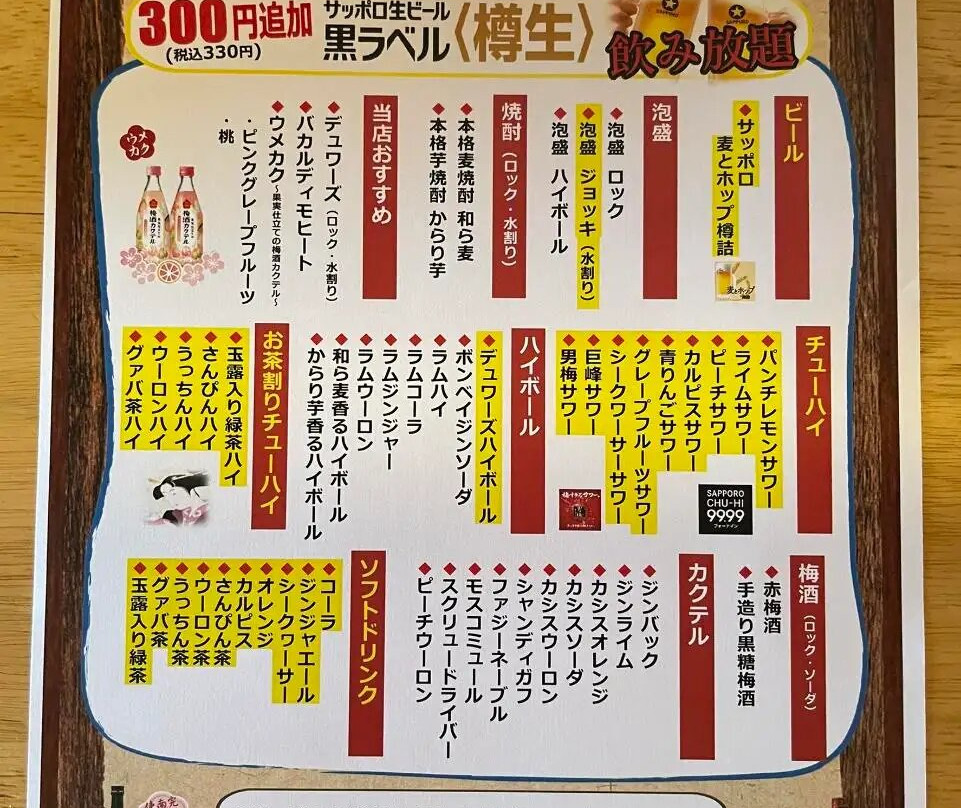 300円追加
(税込330円)
サッポロ生ビール
黒ラベル〈樽生〉
飲み放題
ビール
◆サッポロ
麦とホップ樽詰
麦とホップ
泡盛
◆泡盛 ロック
◆泡盛 ジョッキ(水割り)
◆泡盛 ハイボール
焼酎(ロック・水割り)
◆本格麦焼酎 和ら麦
◆本格芋焼酎 からり芋
当店おすすめ
◆デュワーズ(ロック・水割り)
◆バカルディモヒート
◆ウメカク~果実仕立ての梅酒カクテル~
・ピンクグレープフルーツ
・桃
ウメカク
梅酒カクテル
梅酒カクテル
チューハイ
◆パンチレモンサワー
◆ライムサワー
◆ピーチサワー
◆カルピスサワー
◆青りんごサワー
◆グレープフルーツサワー
◆シークワーサーサワー
◆巨峰サワー
◆男梅サワー
SAPPORO
CHU-HI
99.99
フォーナイン
ハイボール
◆デュワーズハイボール
◆ボンベイジンソーダ
◆ラムハイ
◆ラムコーラ
◆ラムジンジャー
◆ラムウーロン
◆和ら麦香るハイボール
◆からり芋香るハイボール
お茶割りチューハイ
◆玉露入り緑茶ハイ
◆さんぴんハイ
◆うっちんハイ
◆ウーロンハイ
◆グァバ茶ハイ
梅酒(ロック・ソーダ)
◆赤梅酒
◆手造り黒糖梅酒
カクテル
◆ジンバック
◆ジンライム
◆カシスオレンジ
◆カシスソーダ
◆カシスウーロン
◆シャンディガフ
◆ファジーネーブル
◆モスコミュール
◆スクリュードライバー
◆ピーチウーロン
ソフトドリンク
◆コーラ
◆ジンジャエール
◆シークヮーサー
◆オレンジ
◆カルピス
◆さんぴん茶
◆ウーロン茶
◆うっちん茶
◆グァバ茶
◆玉露入り緑茶